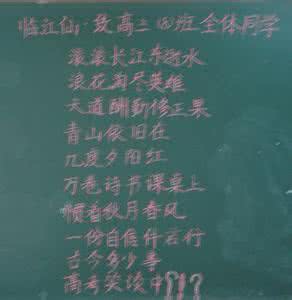 临江仙·致高三⑱班全体同学
滚滚长江东逝水
浪花淘尽英雄
天道酬勤修正果
青山依旧在
几度夕阳红
万卷诗书课桌上
惯看秋月春风
一份自信伴君行
古今多少事
高考笑谈中?!?